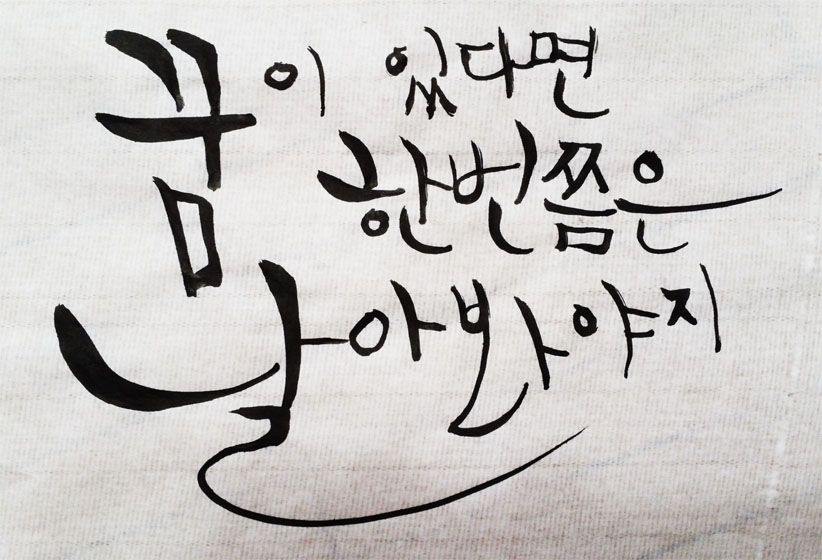 꿈이 있다면
한번쯤은
날아봐야지